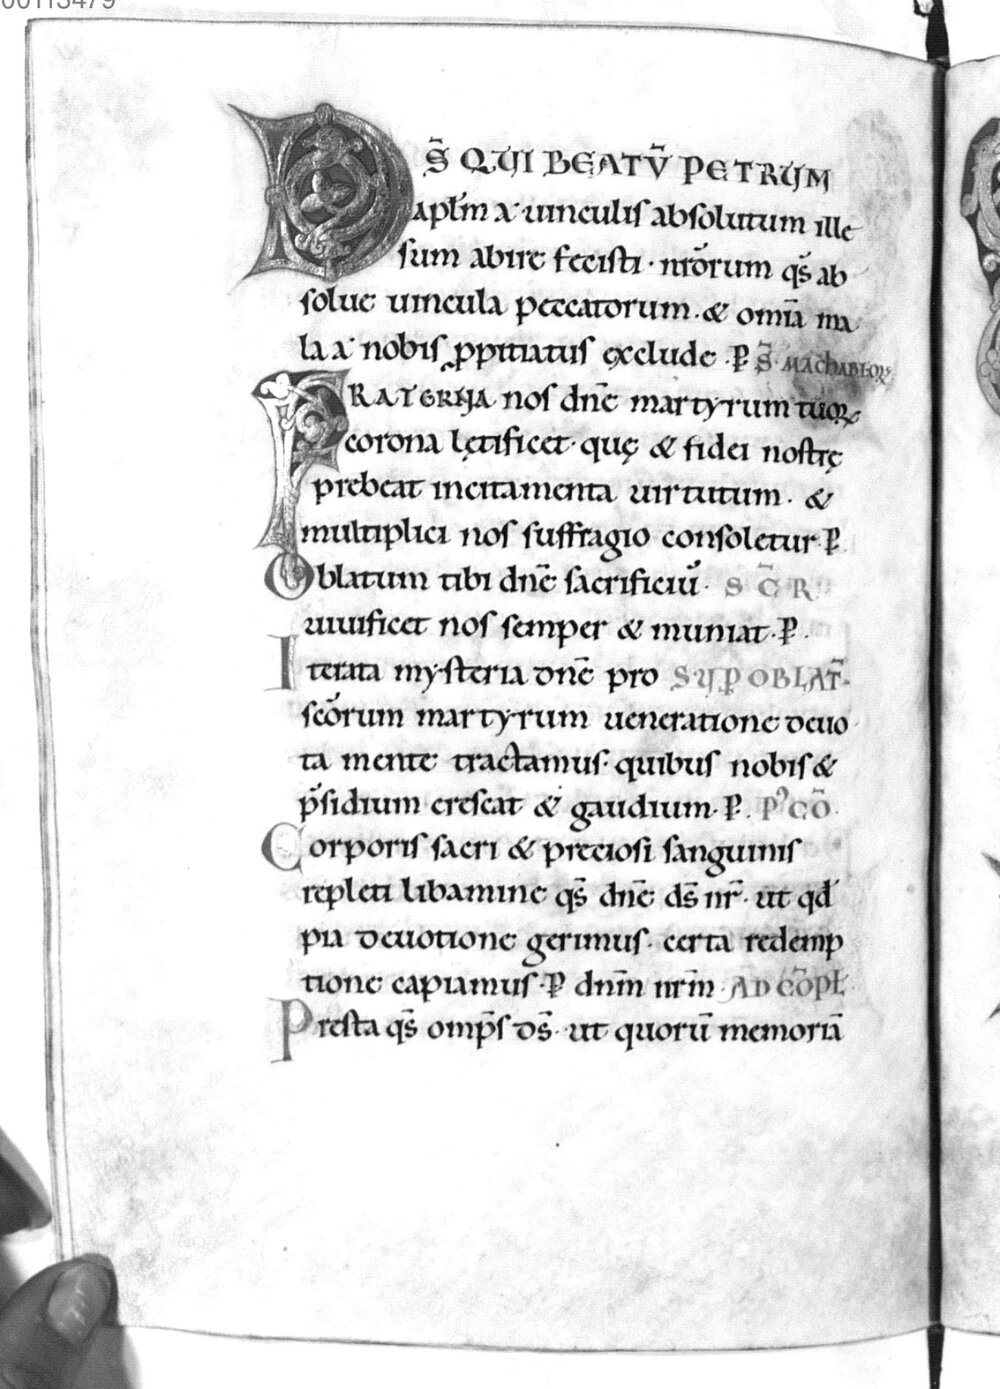 00113479
DS̄ QUI BEATŪ PETRUM
apłm a uinculis absolutum ille
sum abire fecisti · nr̄orum qs̄ ab
solue uincula peccatorum · & omīa ma
la a nobis ꝓpitiatus exclude · P̱ S̄ · MACHABEORꝜ
FRATERNA nos dn̄e martyrum tuoꝝ
corona lętificet · quę & fidei nostrę
prebeat incitamenta uirtutum · &
multiplici nos suffragio consoletur · P̱
Oblatum tibi dn̄e sacrificiū · S C̄ R
uiuificet nos semper & muniat · P̱ ·
Iterata mysteria dn̄e pro SUP OBLAT̄ ·
sc̄orum martyrum ueneratione deuo
ta mente tractamus · quibus nobis &
p̄sidium crescat & gaudium · P̱ · Pꝰ CŌ ·
Corporis sacri & preciosi sanguinis
repleti libamine qs̄ dn̄e ds̄ nr̄ · ut qd̄
pia deuotione gerimus · certa redemp
tione capiamus · P̱ dnm̄ nrm̄ · AD CŌPŁ
Presta qs̄ omp̄s ds̄ · ut quorū memoriā